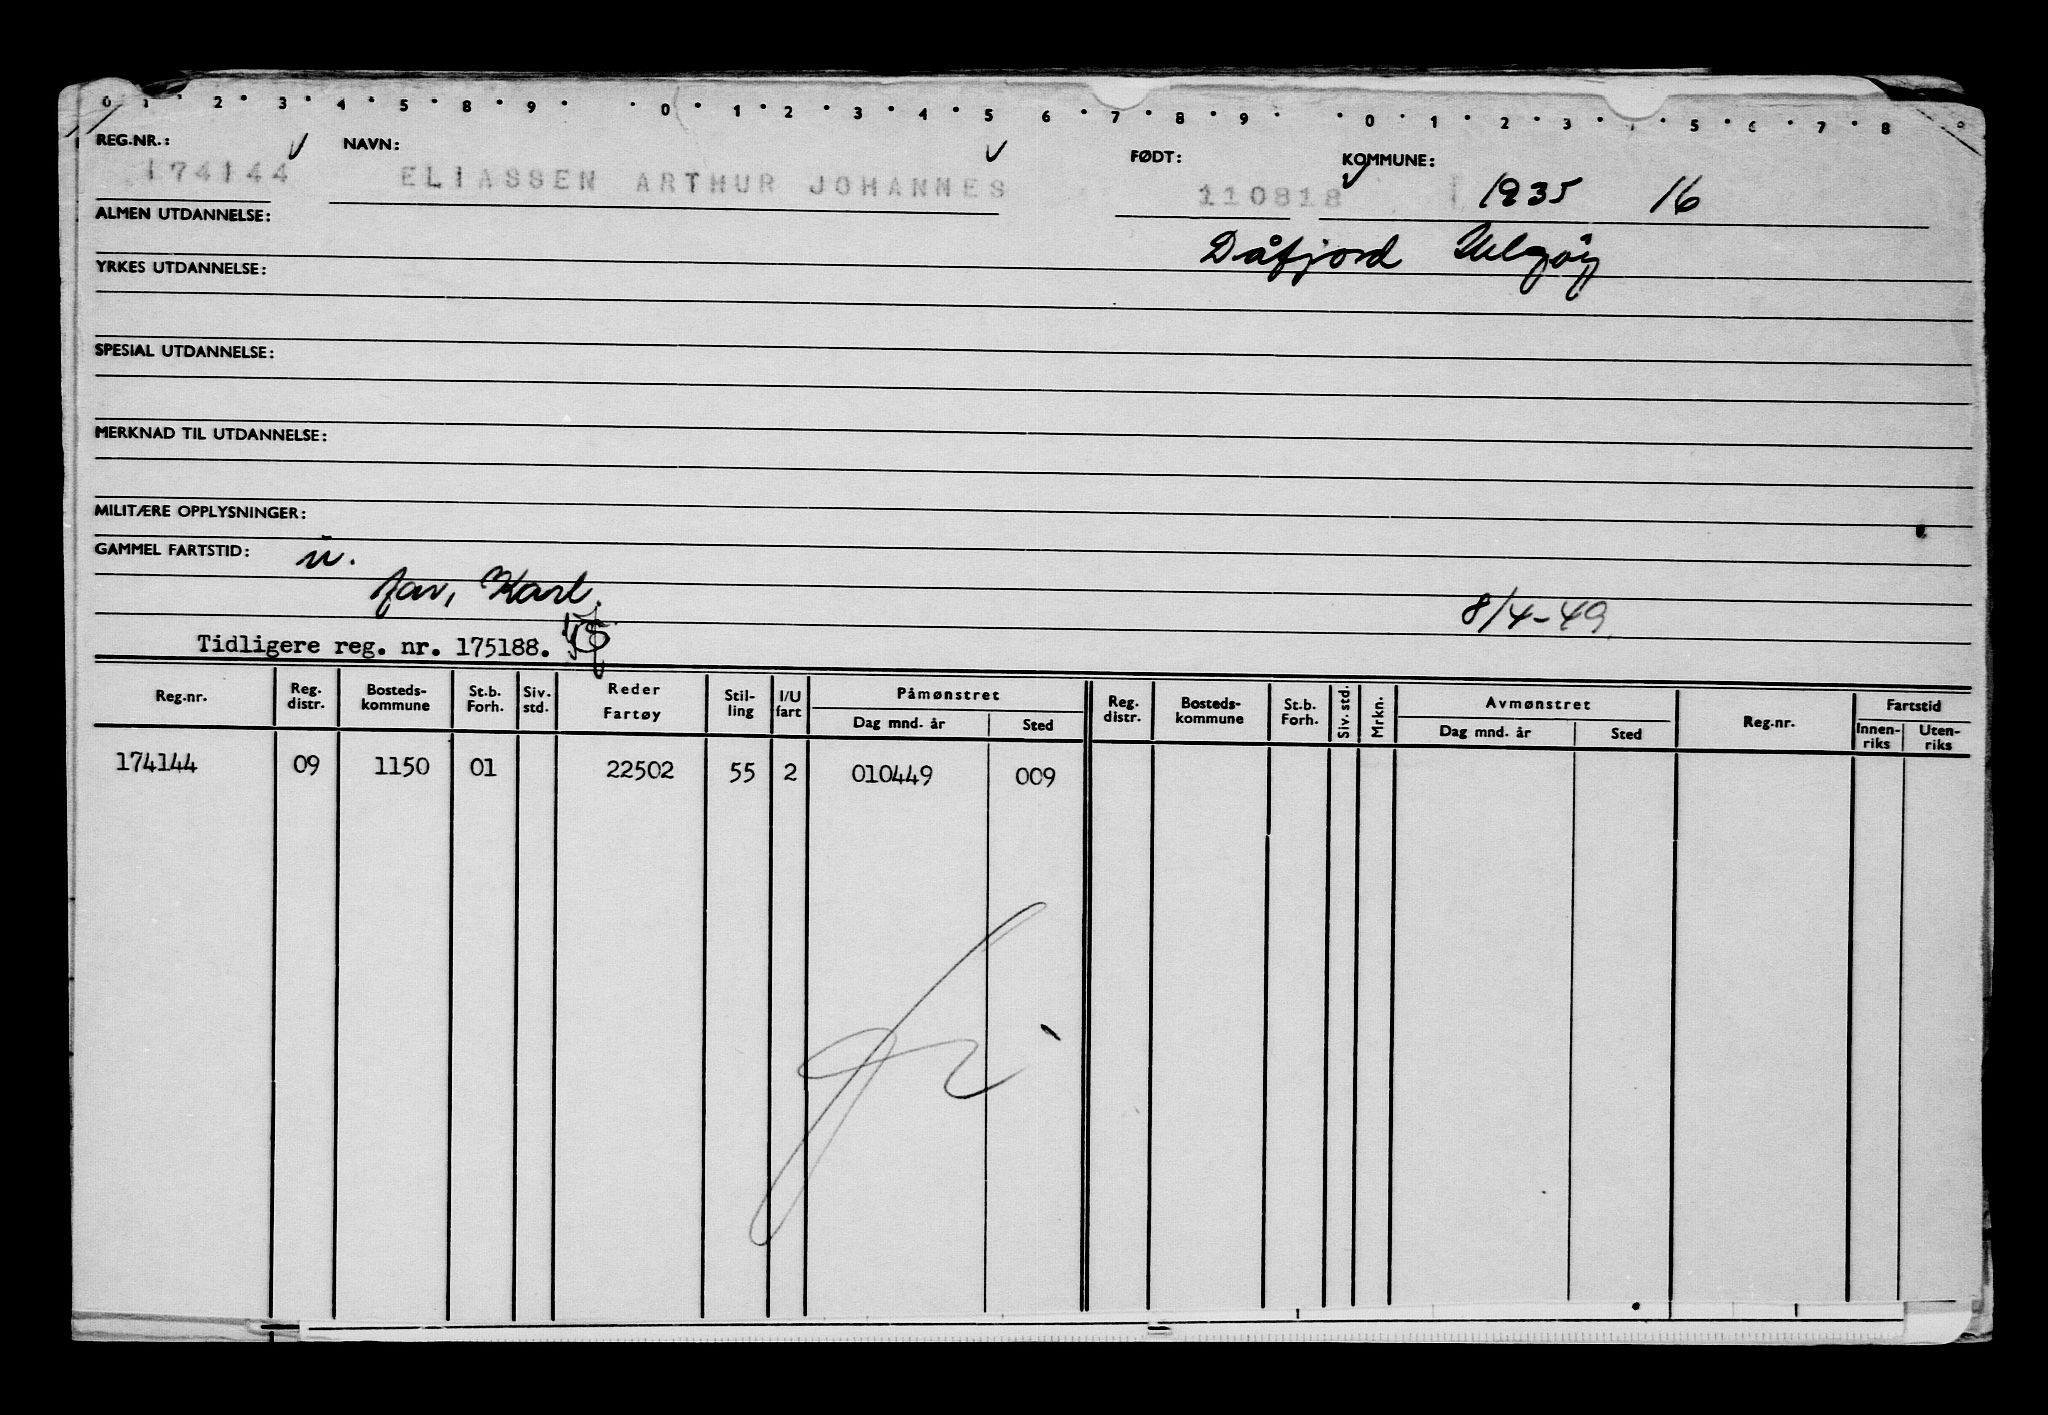 0 1 2 3 4 5 8 9 0 1 2 3 4 5 6 7 8 9 0 1 2 3 5 6 7 8
REG.NR.: NAVN: FØDT: KOMMUNE:
174144 ELIASSEN ARTHUR JOHANNES 110818 1935 16
ALMEN UTDANNELSE:
Dåfjord Helgøy
YRKES UTDANNELSE:
SPESIAL UTDANNELSE:
MERKNAD TIL UTDANNELSE:
MILITÆRE OPPLYSNINGER:
GAMMEL FARTSTID: u.
far, Karl.
8/4-49.
Tidligere reg. nr. 175188.
Reg.nr. Reg. distr. Bosteds-kommune St.b. Forh. Siv. std. Reder Fartøy Stil-ling I/U fart Påmønstret Reg. distr. Bosteds-kommune St.b. Forh. Siv. std. Mrkn. Avmønstret Reg.nr. Fartstid
Dag mnd. år Sted Dag mnd. år Sted Innen-riks Uten-riks
174144 09 1150 01 22502 55 2 010449 009